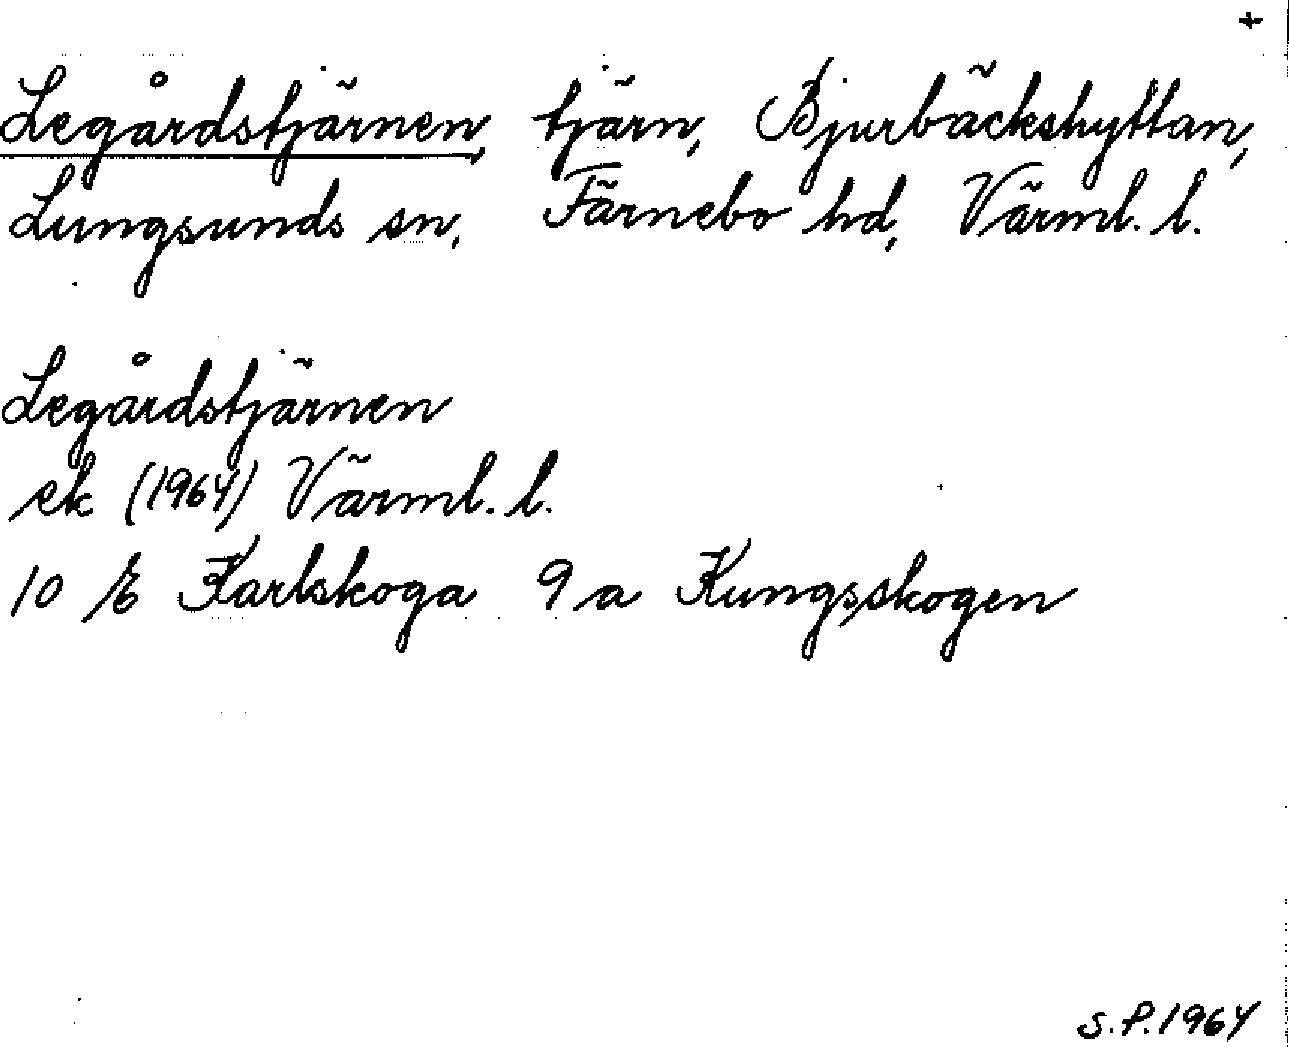 +
Legårdstjärnen, tjärn, Bjurbäckshyttan,
Lungsunds sn, Färnebo hd, Värml. l.
Legårdstjärnen
ek (1964) Värml. l.
10 E Karlskoga 9 a Kungsskogen
S.P. 1964